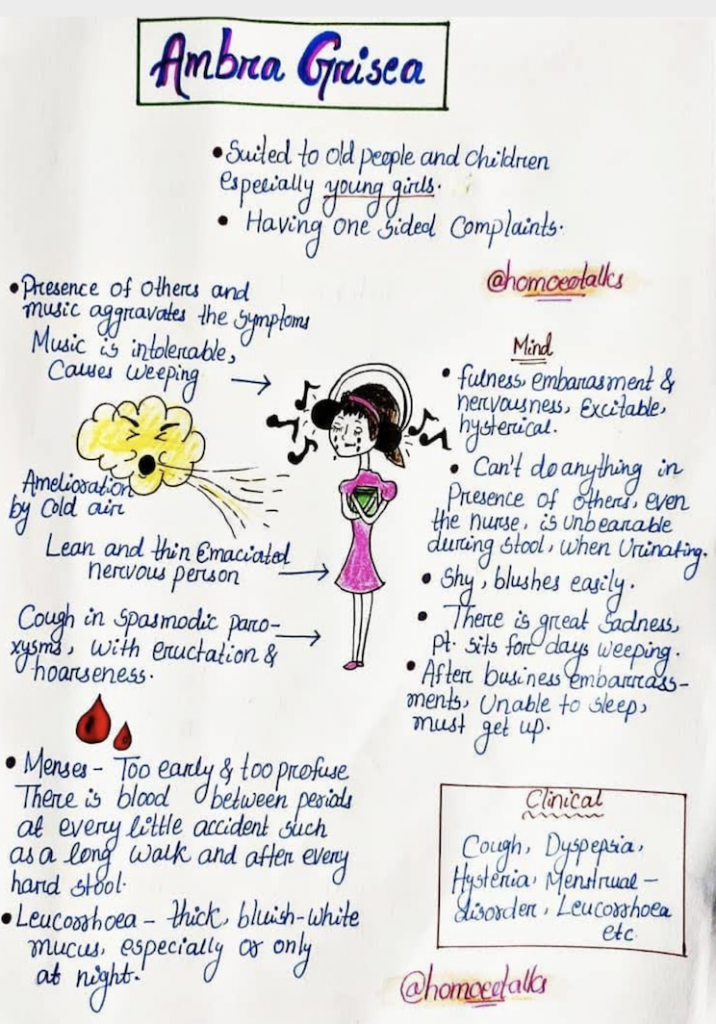 Ambra Grisea
• Suited to old people and children
especially young girls.
• Having one sided complaints.
@homoeotalks
• Presence of others and
music aggravates the symptoms
Music is intolerable,
Causes weeping
Amelioration
by Cold air
Lean and thin Emaciated
nervous person
Cough in spasmodic paro-
xysms, with eructation &
hoarseness.
Mind
• fulness, embarasment &
nervousness, Excitable,
hysterical.
• Can't do anything in
Presence of others, even
the nurse, is Unbearable
during stool, when Urinating.
• Shy, blushes easily.
• There is great Sadness,
pt. sits for days weeping.
• After business embarrass-
ments, Unable to sleep,
must get up.
• Menses – Too early & too profuse
There is blood between periods
at every little accident such
as a long walk and after every
hard stool.
• Leucorrhoea – thick, bluish-white
mucus, especially or only
at night.
Clinical
Cough, Dyspepsia,
Hysteria, Menstrual –
disorder, Leucorrhoea
etc.
@homoeotalks